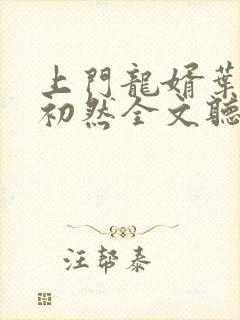 上門龍婿葉
初然全文聽
汪幫泰